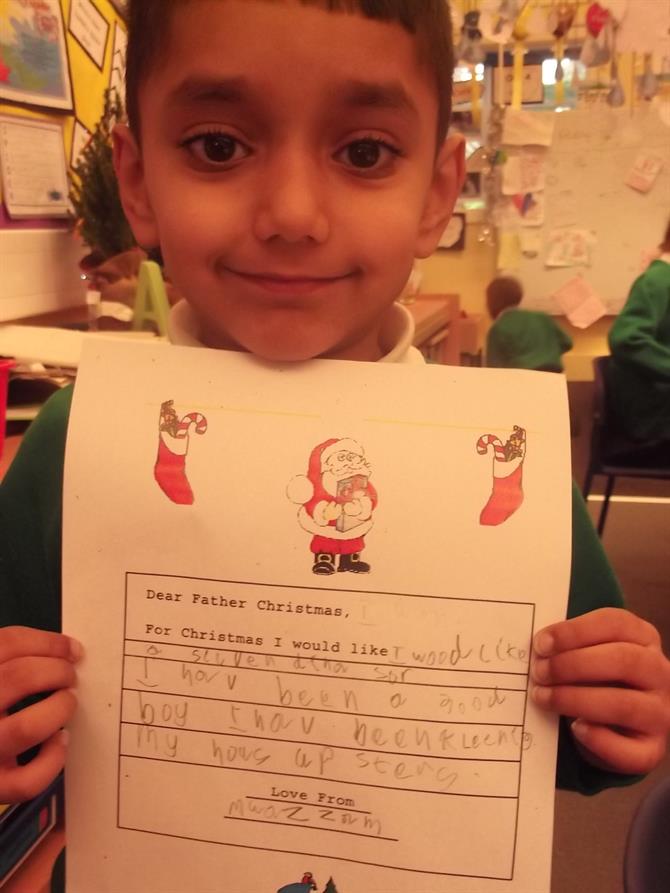 Dear Father Christmas, I
For Christmas I would like I wood like
a
I hav been a good
boy I hav been kleenig
my hows up sters.
Love From
mwazzam